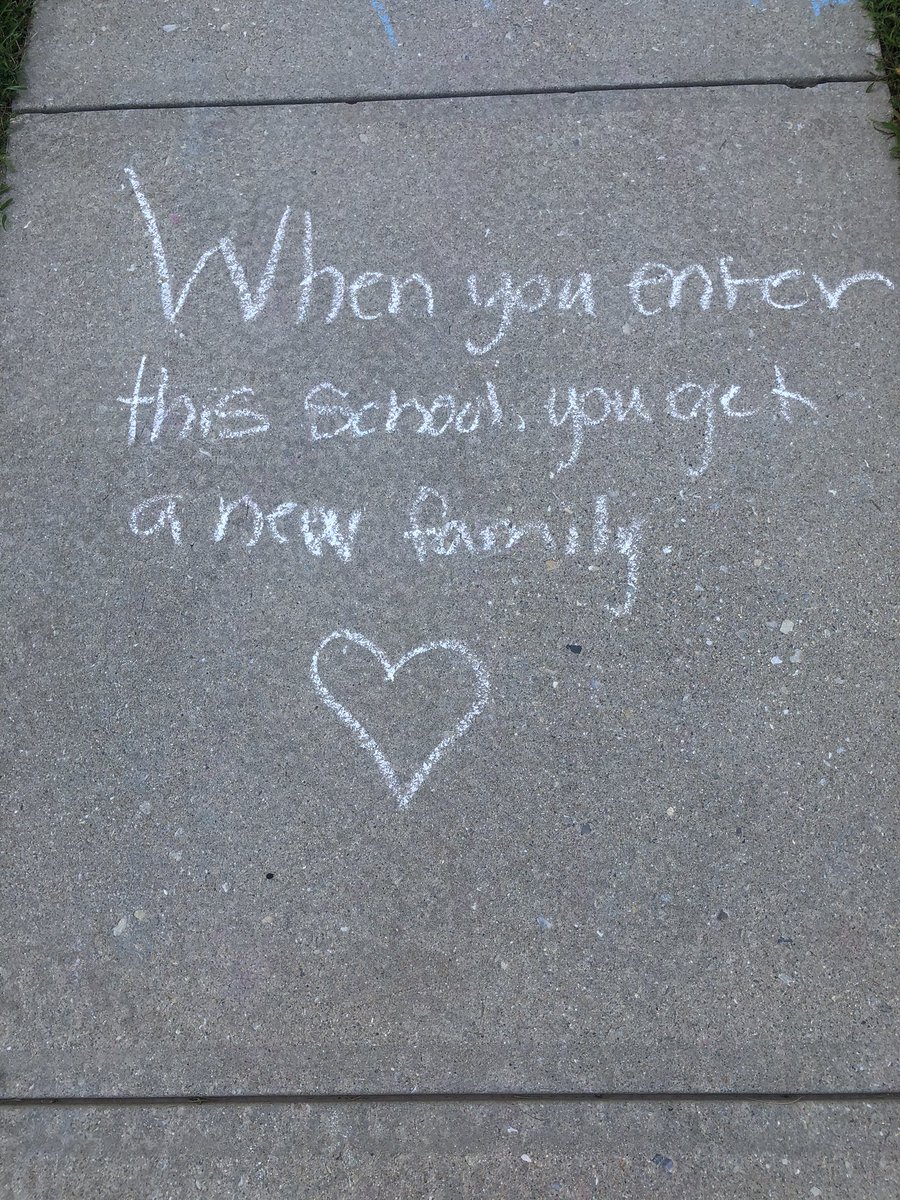 When you enter
this school, you get
a new family.